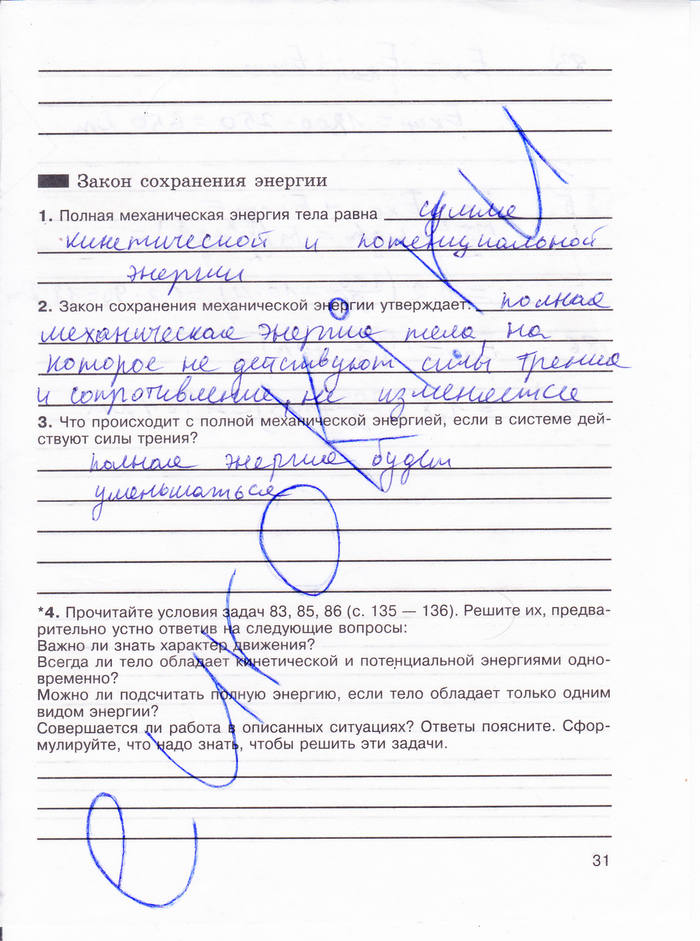 Закон сохранения энергии
1. Полная механическая энергия тела равна сумме
кинетической и потенциальной
энергии
2. Закон сохранения механической энергии утверждает: полная
механическая энергия тела, на
которое не действуют силы трения
и сопротивление, не изменяется
3. Что происходит с полной механической энергией, если в системе дей-
ствуют силы трения?
полная энергия будет
уменьшаться
*4. Прочитайте условия задач 83, 85, 86 (с. 135 — 136). Решите их, предва-
рительно устно ответив на следующие вопросы:
Важно ли знать характер движения?
Всегда ли тело обладает кинетической и потенциальной энергиями одно-
временно?
Можно ли подсчитать полную энергию, если тело обладает только одним
видом энергии?
Совершается ли работа в описанных ситуациях? Ответы поясните. Сфор-
мулируйте, что надо знать, чтобы решить эти задачи.
31